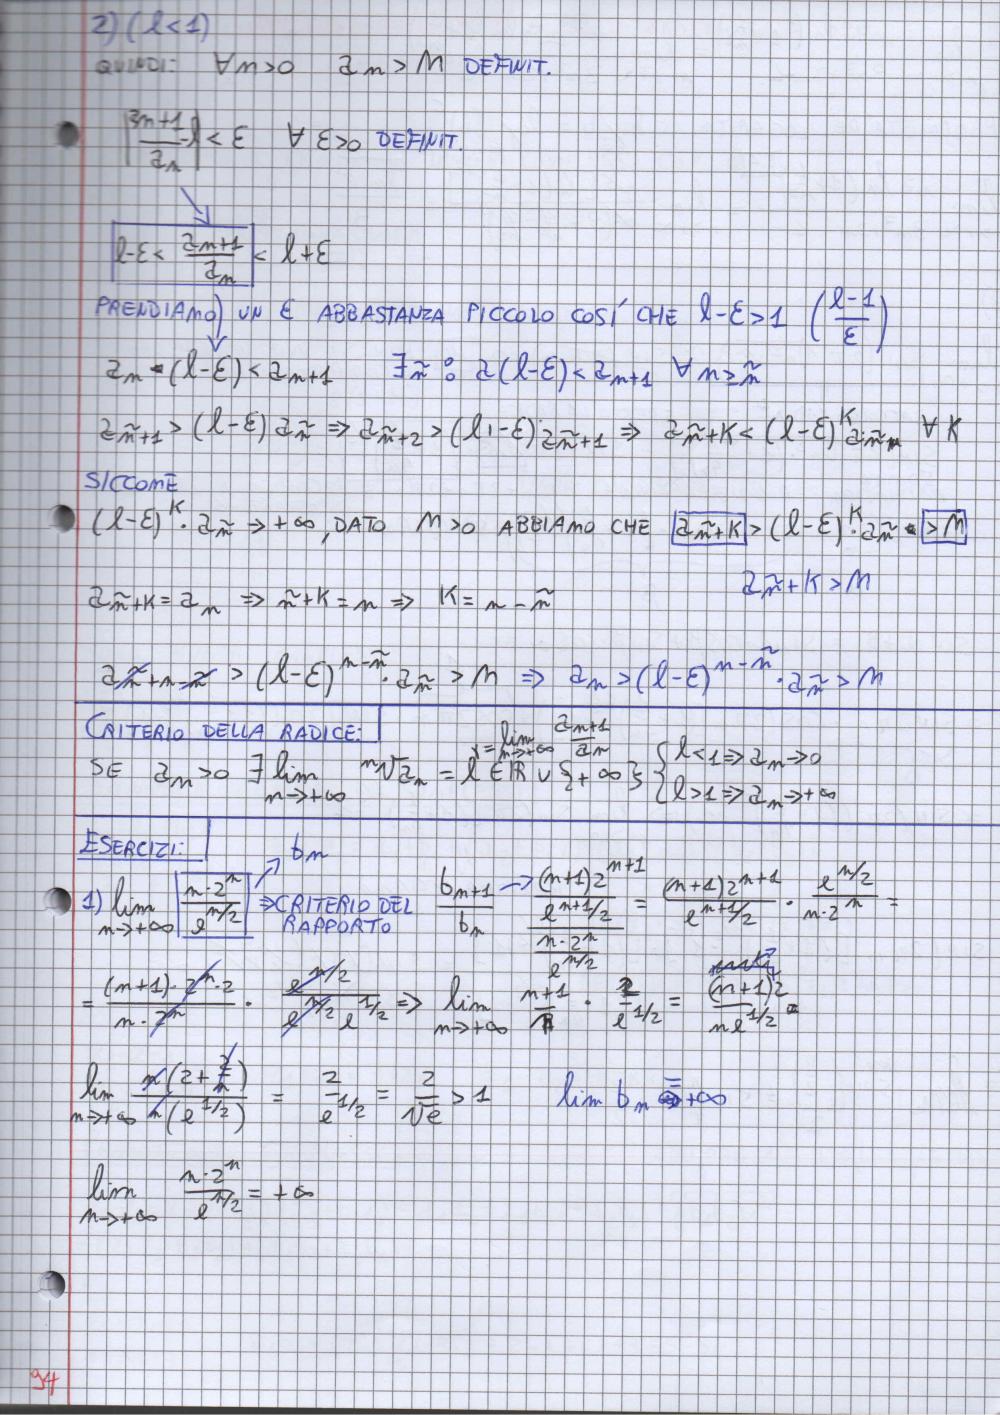 2) (l<1)
QUINDI: ∀m>0 an > M DEFINIT.
|an+1/an - l| < ε ∀ ε>0 DEFINIT.
l-ε < an+1/an < l+ε
PRENDIAMO UN ε ABBASTANZA PICCOLO COSÍ CHE l-ε>1 (l-1/ε)
an · (l-ε) < an+1 ∃ñ : a(l-ε) < an+1 ∀n≥ñ
añ+1 > (l-ε) añ ⇒ añ+2 > (l-ε) · añ+1 ⇒ añ+K < (l-ε)^K añ ∀K
SICCOME
(l-ε)^K · añ → +∞, DATO M>0 ABBIAMO CHE añ+K > (l-ε)^K · añ > M
añ+K > M
añ+K = an ⇒ ñ+K = n ⇒ K = n-ñ
añ+n-ñ > (l-ε)^n-ñ · añ > M ⇒ an > (l-ε)^n-ñ · añ > M
CRITERIO DELLA RADICE:
= lim n→+∞ an+1/an
SE an>0 ∃ lim n→+∞ ⁿ√an = l ∈ ℝ ∪ {+∞} { l<1 ⇒ an→0
{ l>1 ⇒ an→+∞
ESERCIZI:
bn
1) lim n→+∞ n·2^n/e^n/2 ⇒ CRITERIO DEL RAPPORTO bn+1/bn → (n+1)2^n+1/e^n+1/2 / n·2^n/e^n/2 = (n+1)2^n+1/e^n+1/2 · e^n/2/n·2^n =
= (n+1)·2^n·2/n·2^n · e^n/2/e^n/2 e^1/2 ⇒ lim n→+∞ n+1/n · 2/e^1/2 = (n+1)2/n e^1/2 =
lim n→+∞ n(2+2/n)/n(e^1/2) = 2/e^1/2 = 2/√e > 1 lim bn = +∞
lim n→+∞ n·2^n/e^n/2 = +∞
94